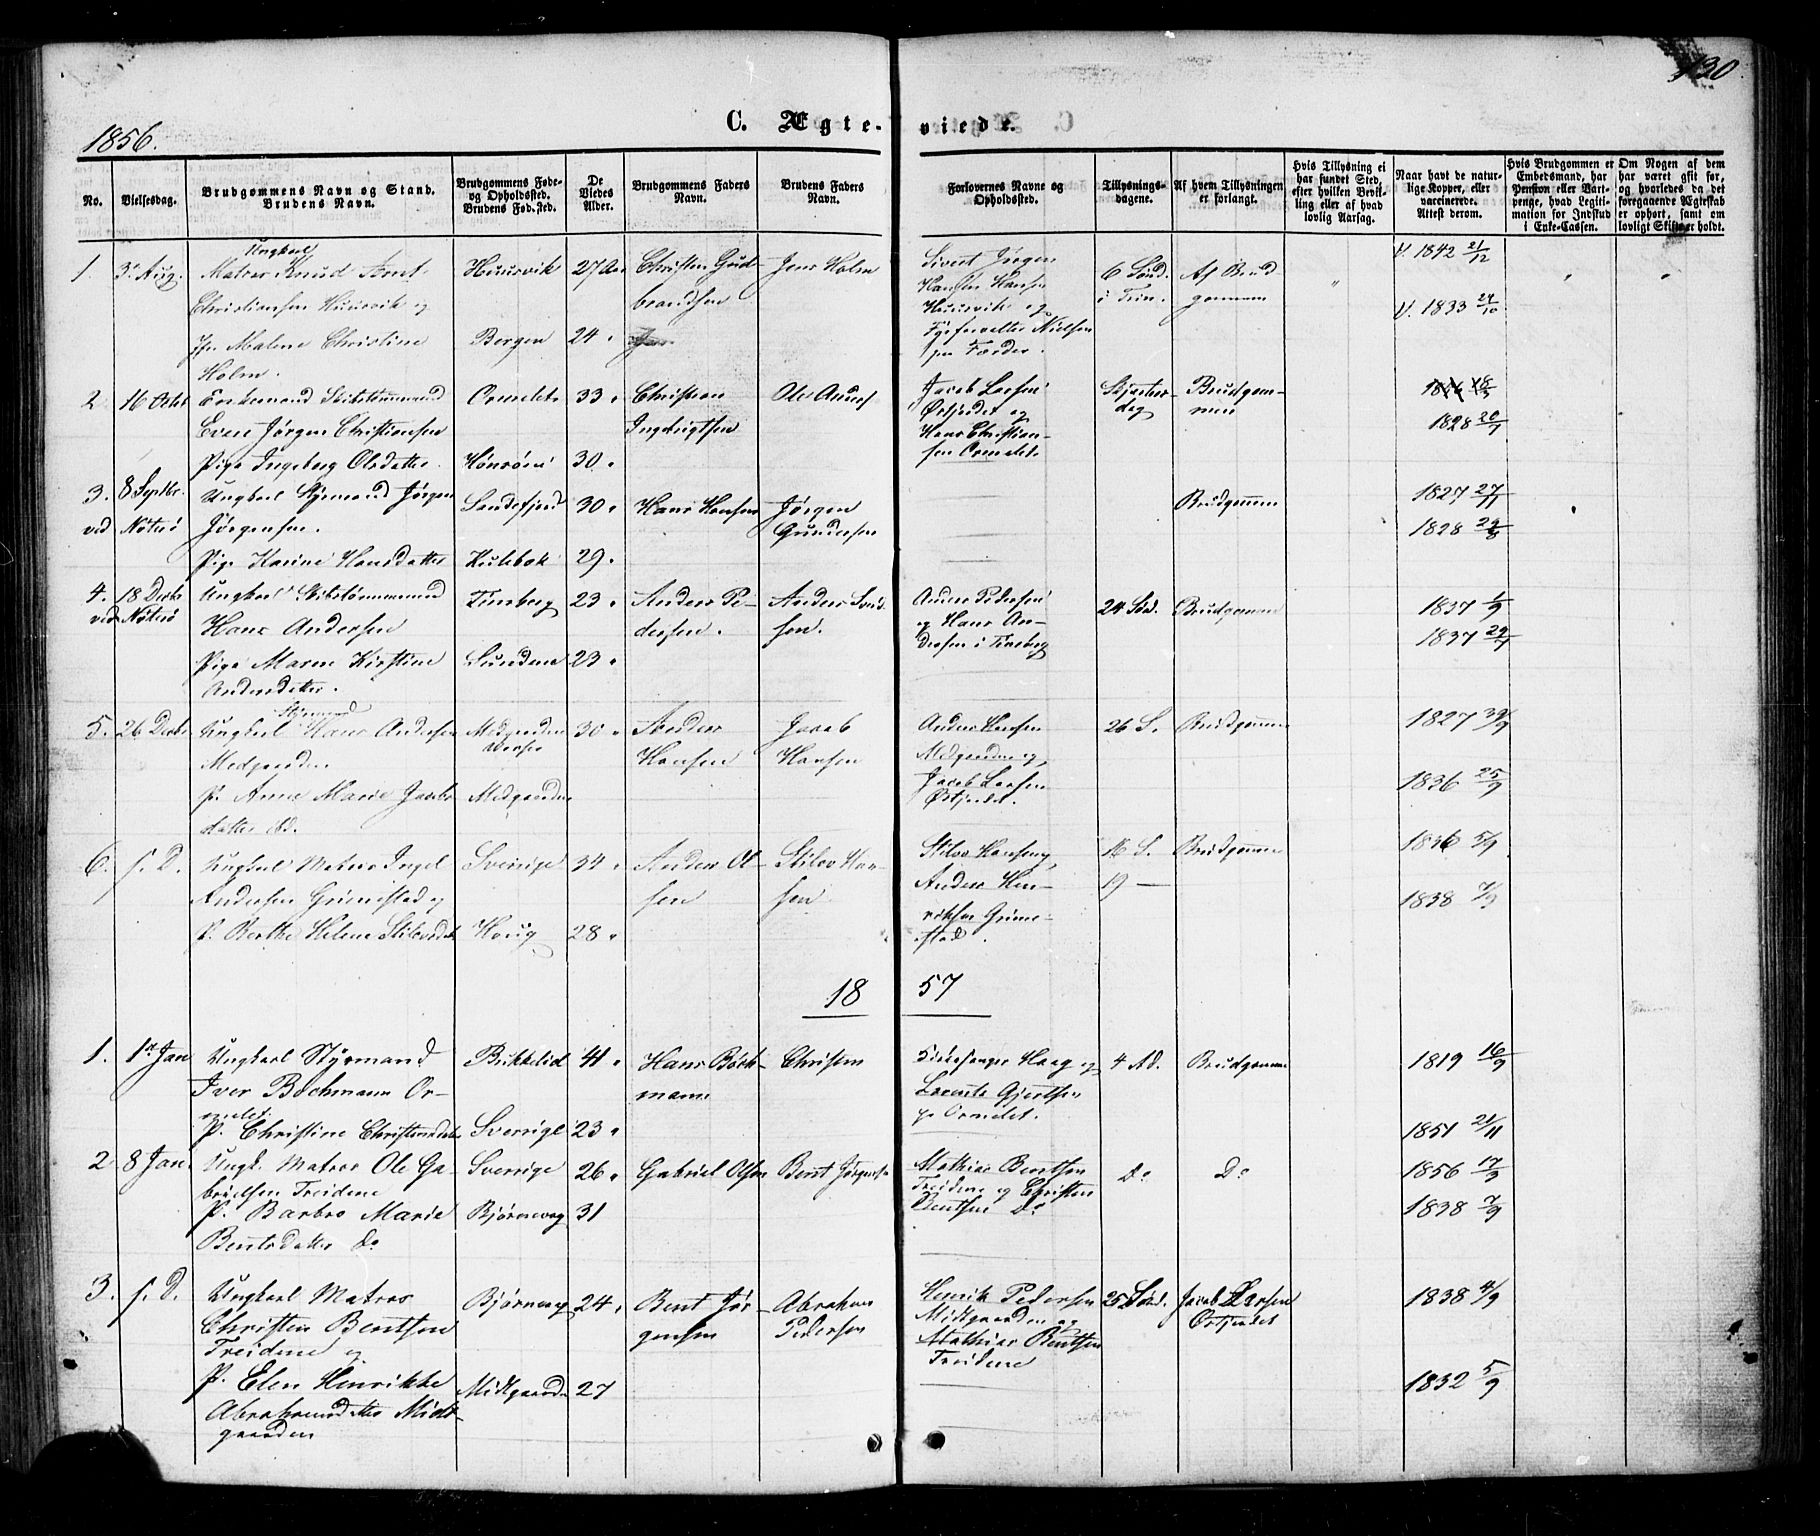 130
1856.
C. Ægteviede.
No.
Vielsesdag.
Brudgommens Navn og Stand.
Brudens Navn.
Brudgommens Føde-
og Opholdssted.
Brudens Fød.sted.
De
Viedes
Alder.
Brudgommens Faders
Navn.
Brudens Faders
Navn.
Forlovernes Navne og
Opholdssted.
Tillysnings-
dagene.
Af hvem Tillysningen
er forlangt.
Hvis Tillysning ei
har fundet Sted,
efter hvilken Bevil-
ling eller af hvad
lovlig Aarsag.
Naar havt de natur-
lige Kopper, eller
vaccinerede.
Attest derom.
Hvis Brudgommen er
Embedsmand, har
Pension eller Vart-
penge, hvad Legiti-
mation for Indskud
i Enke-Cassen.
Om Nogen af dem
har været gift før,
og hvorledes da det
foregaaende Ægteskab
er ophørt, samt om
lovligt Skifte er holdt.
1. 3' Aug. Ungkarl
Matros Knud Arnt
Christiansen Huusvik og
Jfr Malene Christine
Holm.
Huusvik 27 Aar
Bergen 24
Christen Gud-
brandsen
Jens Holm
Sivert Jørgen
Hansen
Huusvik og
Nielsen
Færder.
6 Sønd.
i Trin.
Af Brud-
gommen
V. 1842 21/12
V. 1833 24/10
2 16 Octbr Enkemand Skibstømmermand
Even Jørgen Christiansen
Pige Ingeborg Olsdatter
Ormelet 33
Hønsøen 30
Christian
Ingebrigtsen
Ole
Jacob Larsen
Østjordet og
Hans Christian-
sen Ormelet
Skjærtors-
dag
Brudgom-
men
1828 20/7
3. 8 Septbr.
ved Nøterø
Ungkarl Styrmand Jørgen
Jørgensen.
Pige Karine Hansdatter
Sandefjord 30
29
Hans Hansen
Jørgen
Gundersen
Brudgommen
1827 27/11
1828 29/8
4. 18 Decbr
ved Nøterø
Ungkarl Skibstømmermand
Hans Andersen
Pige Maren Kirstine
Andersdatter.
Tønsberg 23
Sundene 23
Anders Pe-
dersen.
Anders
sen.
Anders Pedersen
og Hans An-
dersen i Tønsberg
24 Sød.
Brudgommen
1837 1/9
1837
5. 26 Decbr Ungkarl Styrmand Hans Andersen
Medgaarden
P. Anne Marie Jacobs-
datter ibd.
Medgaarden
30
Medgaarden
Anders
Hansen
Jacob
Hansen
Anders Hansen
Medgaarden og
Jacob Larsen
Østjordet.
26 S.
Brudgommen
1827
1836 25/9
6. s. D. Ungkarl Matros Ingel
Andersen Grimestad og
P. Berthe Helene Stilovsdat
Sverrige 34
Houg 28
Anders Ol-
sen
Stilov Han-
sen
Stilov Hansen
Anders Hen-
riksen Grime-
stad.
16 S.
19 —
Brudgommen
1836 5/9
1838 7/9
18 57
1. 1st Jan Ungkarl Styrmand
Iver Bochmann Or-
melet.
P. Christine Christensdatr
Bikkelid 41
Sverrige 23
Hans Boch-
mann
Christen
Kirkesanger Haag og
Gjertsen
Ormelet.
4 Ad.
Brudgommen
1819 16/9
1851 21/11
2 8 Jan. Ungk. Matros Ole Ga-
brielsen Treidene
P. Barbro Marie
Bentsdatter do
Sverrige 26
Bjørnevaag 31
Gabriel Olsen
Bent Jørgensen
Mathias Bentsen
Treidene og Christen
Bentsen do
Do
Do
1856 17/3
1838 7/9
3. s. D. Ungkarl Matros
Christen Bentsen
Treidene og
P. Elen Henrikke
Abrahamsdatter Midt-
gaarden
Bjørnevaag 24
Midtgaarden 27
Bent Jør-
gensen
Abraham
Pedersen
Henrik Pedersen
Midtgaarden og
Mathias Bentsen
Treidene
25 Sønd.
Jacob Larsen
Østjordet
1838 4/9
1832 5/9